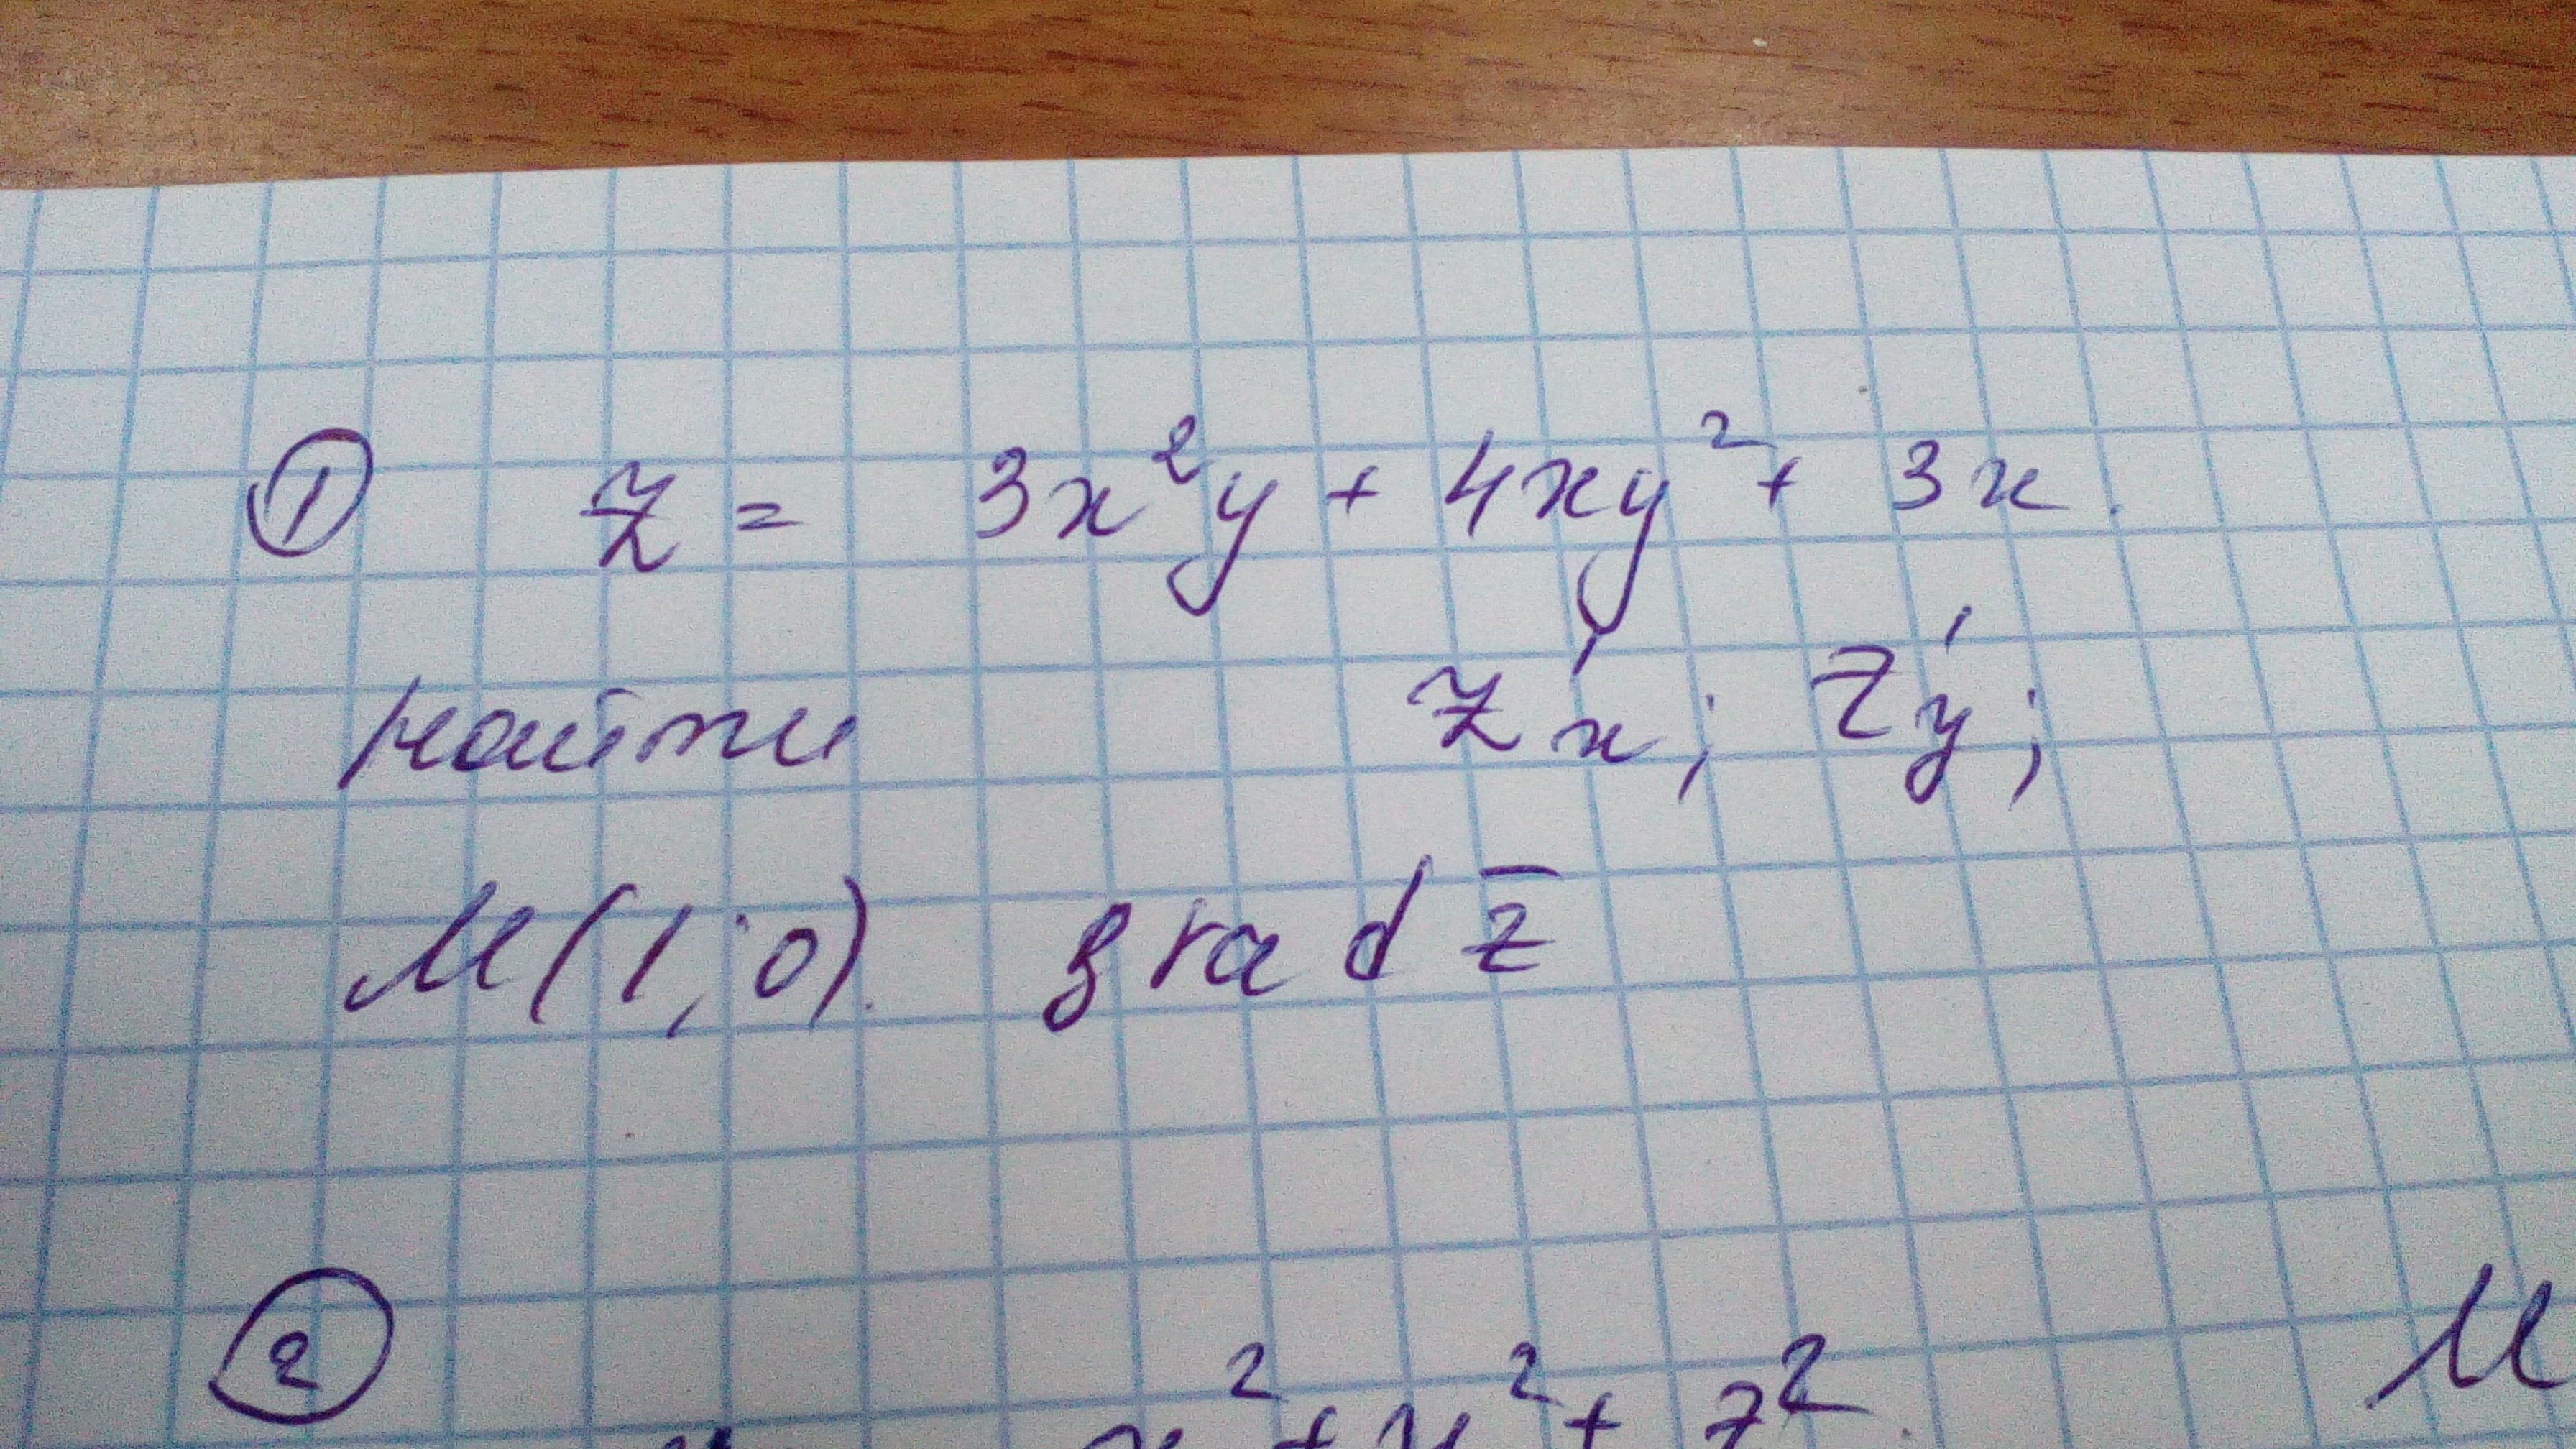 ① z = 3x²y + 4xy² + 3x.
найти z'x; z'y;
M(1;0). grad z̄
② M
x² + y² + z²